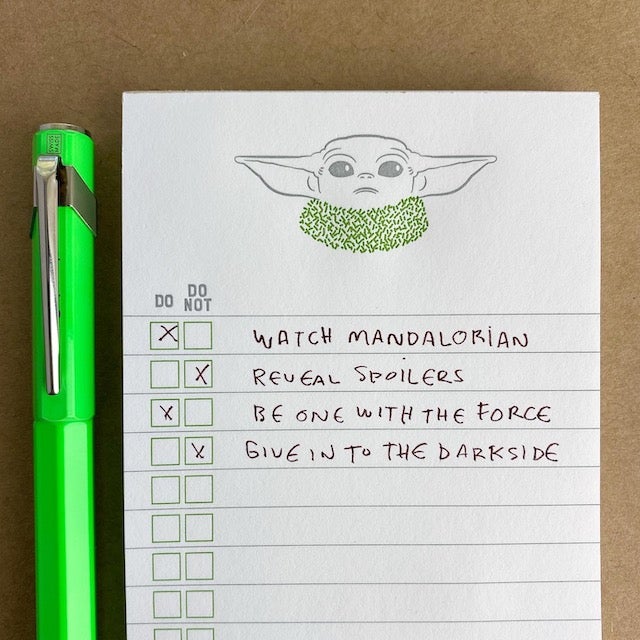 SWISS MADE
DO
DO
NOT
WATCH MANDALORIAN
REVEAL SPOILERS
BE ONE WITH THE FORCE
GIVE IN TO THE DARKSIDE